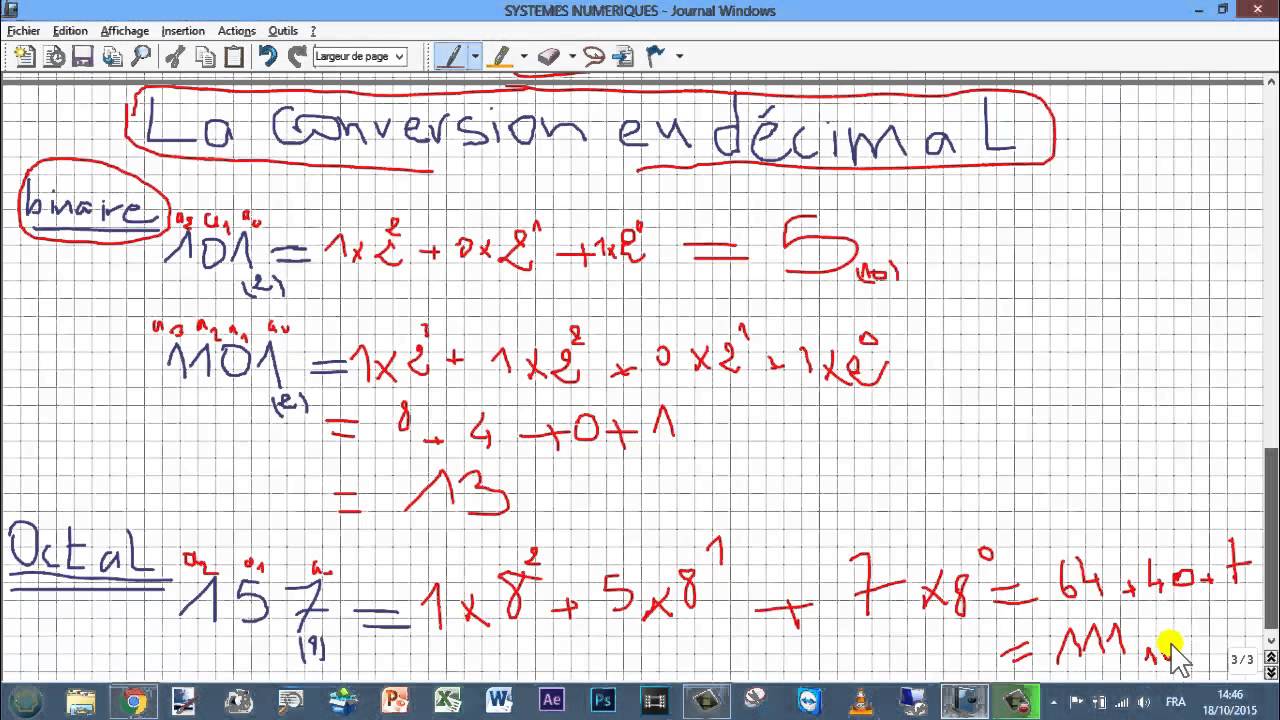 SYSTEMES NUMERIQUES - Journal Windows
Fichier Edition Affichage Insertion Actions Outils ?
Largeur de page
La conversion en décimal
binaire
a2 a1 a0
101(2) = 1×2² + 0×2¹ + 1×2⁰ = 5(10)
a3 a2 a1 a0
1101(2) = 1×2³ + 1×2² + 0×2¹ + 1×2⁰
= 8 + 4 + 0 + 1
= 13
Octal
a2 a1 a0
157(8) = 1×8² + 5×8¹ + 7×8⁰ = 64 + 40 + 7
= 111
3/3
FRA
14:46
18/10/2015